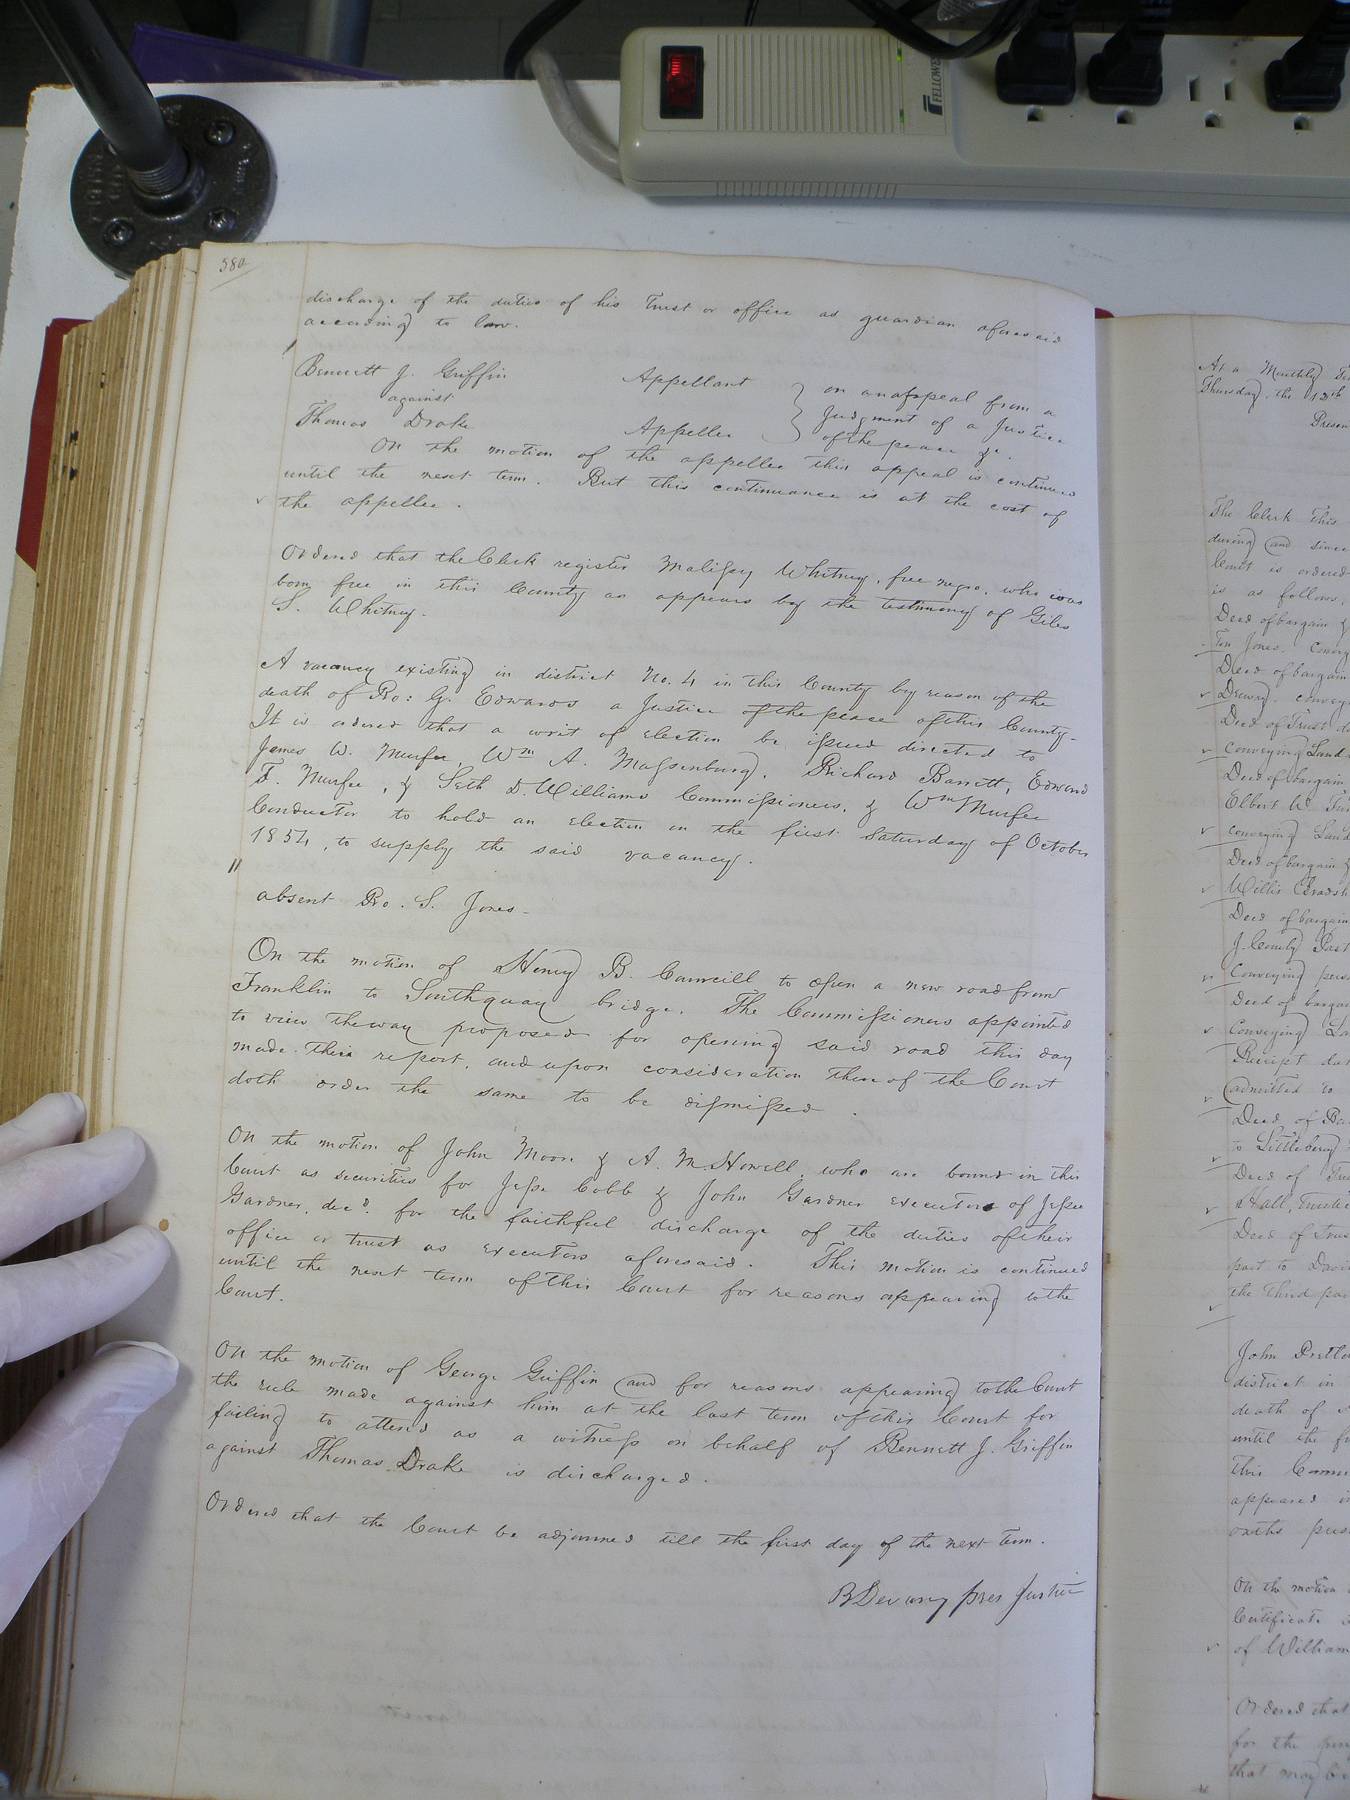 FELLOWES
380
discharge of the duties of his trust or office as guardian aforesaid
according to law.
Bennett J. Griffin Appellant } on an appeal from a
against judgment of a Justice
Thomas Drake Appellee } of the peace &c.
On the motion of the appellee this appeal is continued
until the next term. But this continuance is at the cost of
the appellee.
Ordered that the Clerk register Malissy Whitney, free negro, who was
born free in this County as appears by the testimony of Giles
S. Whitney.
A vacancy existing in district No. 4 in this County by reason of the
death of Ro: G. Edwards a Justice of the peace of this County.
It is ordered that a writ of election be issued directed to
James W. Murfee, Wm A. Massenburg, Richard Barrett, Edward
F. Murfee, & Seth D. Williams Commissioners, & Wm Murfee
Conductor to hold an election on the first Saturday of October
1854, to supply the said vacancy.
absent Ro. S. Jones.
On the motion of Henry B. Councill to open a new road from
Franklin to Southquay bridge. The Commissioners appointed
to view the way proposed for opening said road this day
made their report, and upon consideration thereof the Court
doth order the same to be dismissed.
On the motion of John Moore & A. M. Howell, who are bound in this
Court as securities for Jesse Cobb & John Gardner executors of Jesse
Gardner, decd. for the faithful discharge of the duties of their
office or trust as executors aforesaid. This motion is continued
until the next term of this Court for reasons appearing to the
Court.
On the motion of George Griffin and for reasons appearing to the Court
the rule made against him at the last term of this Court for
failing to attend as a witness on behalf of Bennett J. Griffin
against Thomas Drake is discharged.
Ordered that the Court be adjourned till the first day of the next term.
B Devany pres Justice
At a Monthly
Thursday, the 12th
Presen
The Clerk this
during and since
Court is ordered
is as follows,
Deed of bargain &
Jones. Convey
Deed of bargain
Drewry. convey
Deed of Trust d
conveying Land
Deed of bargain
Elbert W.
conveying Land
Deed of bargain &
Willis Bradsh
Deed of bargain
J.
Conveying perso
Deed of bargain
Conveying La
Receipt dat
admitted to
Deed of Ba
to Littleberry
Deed of Tru
Hall, Trustee
Deed of Trus
part to David
the third par
John Pretlo
district in
death of
until the fi
this Comm
appeared in
oaths pres
On the motion
Certificate
of William
Ordered that
for the pur
that may be